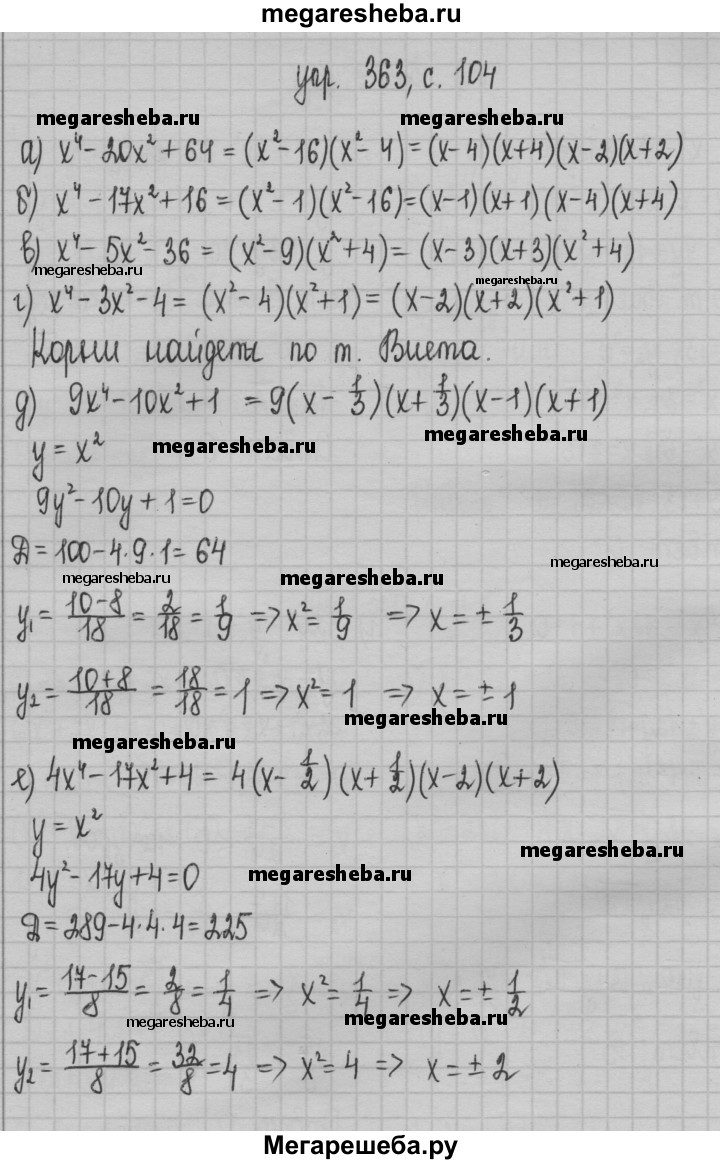 megaresheba.ru
упр. 363, с. 104
megaresheba.ru megaresheba.ru
а) x⁴ - 20x² + 64 = (x² - 16)(x² - 4) = (x - 4)(x + 4)(x - 2)(x + 2)
б) x⁴ - 17x² + 16 = (x² - 1)(x² - 16) = (x - 1)(x + 1)(x - 4)(x + 4)
в) x⁴ - 5x² - 36 = (x² - 9)(x² + 4) = (x - 3)(x + 3)(x² + 4)
megaresheba.ru megaresheba.ru
г) x⁴ - 3x² - 4 = (x² - 4)(x² + 1) = (x - 2)(x + 2)(x² + 1)
Корни найдены по т. Виета.
д) 9x⁴ - 10x² + 1 = 9(x - 1/3)(x + 1/3)(x - 1)(x + 1)
megaresheba.ru
y = x² megaresheba.ru
9y² - 10y + 1 = 0
Д = 100 - 4·9·1 = 64 megaresheba.ru
megaresheba.ru megaresheba.ru
y₁ = (10 - 8)/18 = 2/18 = 1/9 => x² = 1/9 => x = ± 1/3
y₂ = (10 + 8)/18 = 18/18 = 1 => x² = 1 => x = ± 1
megaresheba.ru
megaresheba.ru
е) 4x⁴ - 17x² + 4 = 4(x - 1/2)(x + 1/2)(x - 2)(x + 2)
y = x²
megaresheba.ru
4y² - 17y + 4 = 0 megaresheba.ru
Д = 289 - 4·4·4 = 225
y₁ = (17 - 15)/8 = 2/8 = 1/4 => x² = 1/4 => x = ± 1/2
megaresheba.ru megaresheba.ru
y₂ = (17 + 15)/8 = 32/8 = 4 => x² = 4 => x = ± 2
Мегарешеба.ру